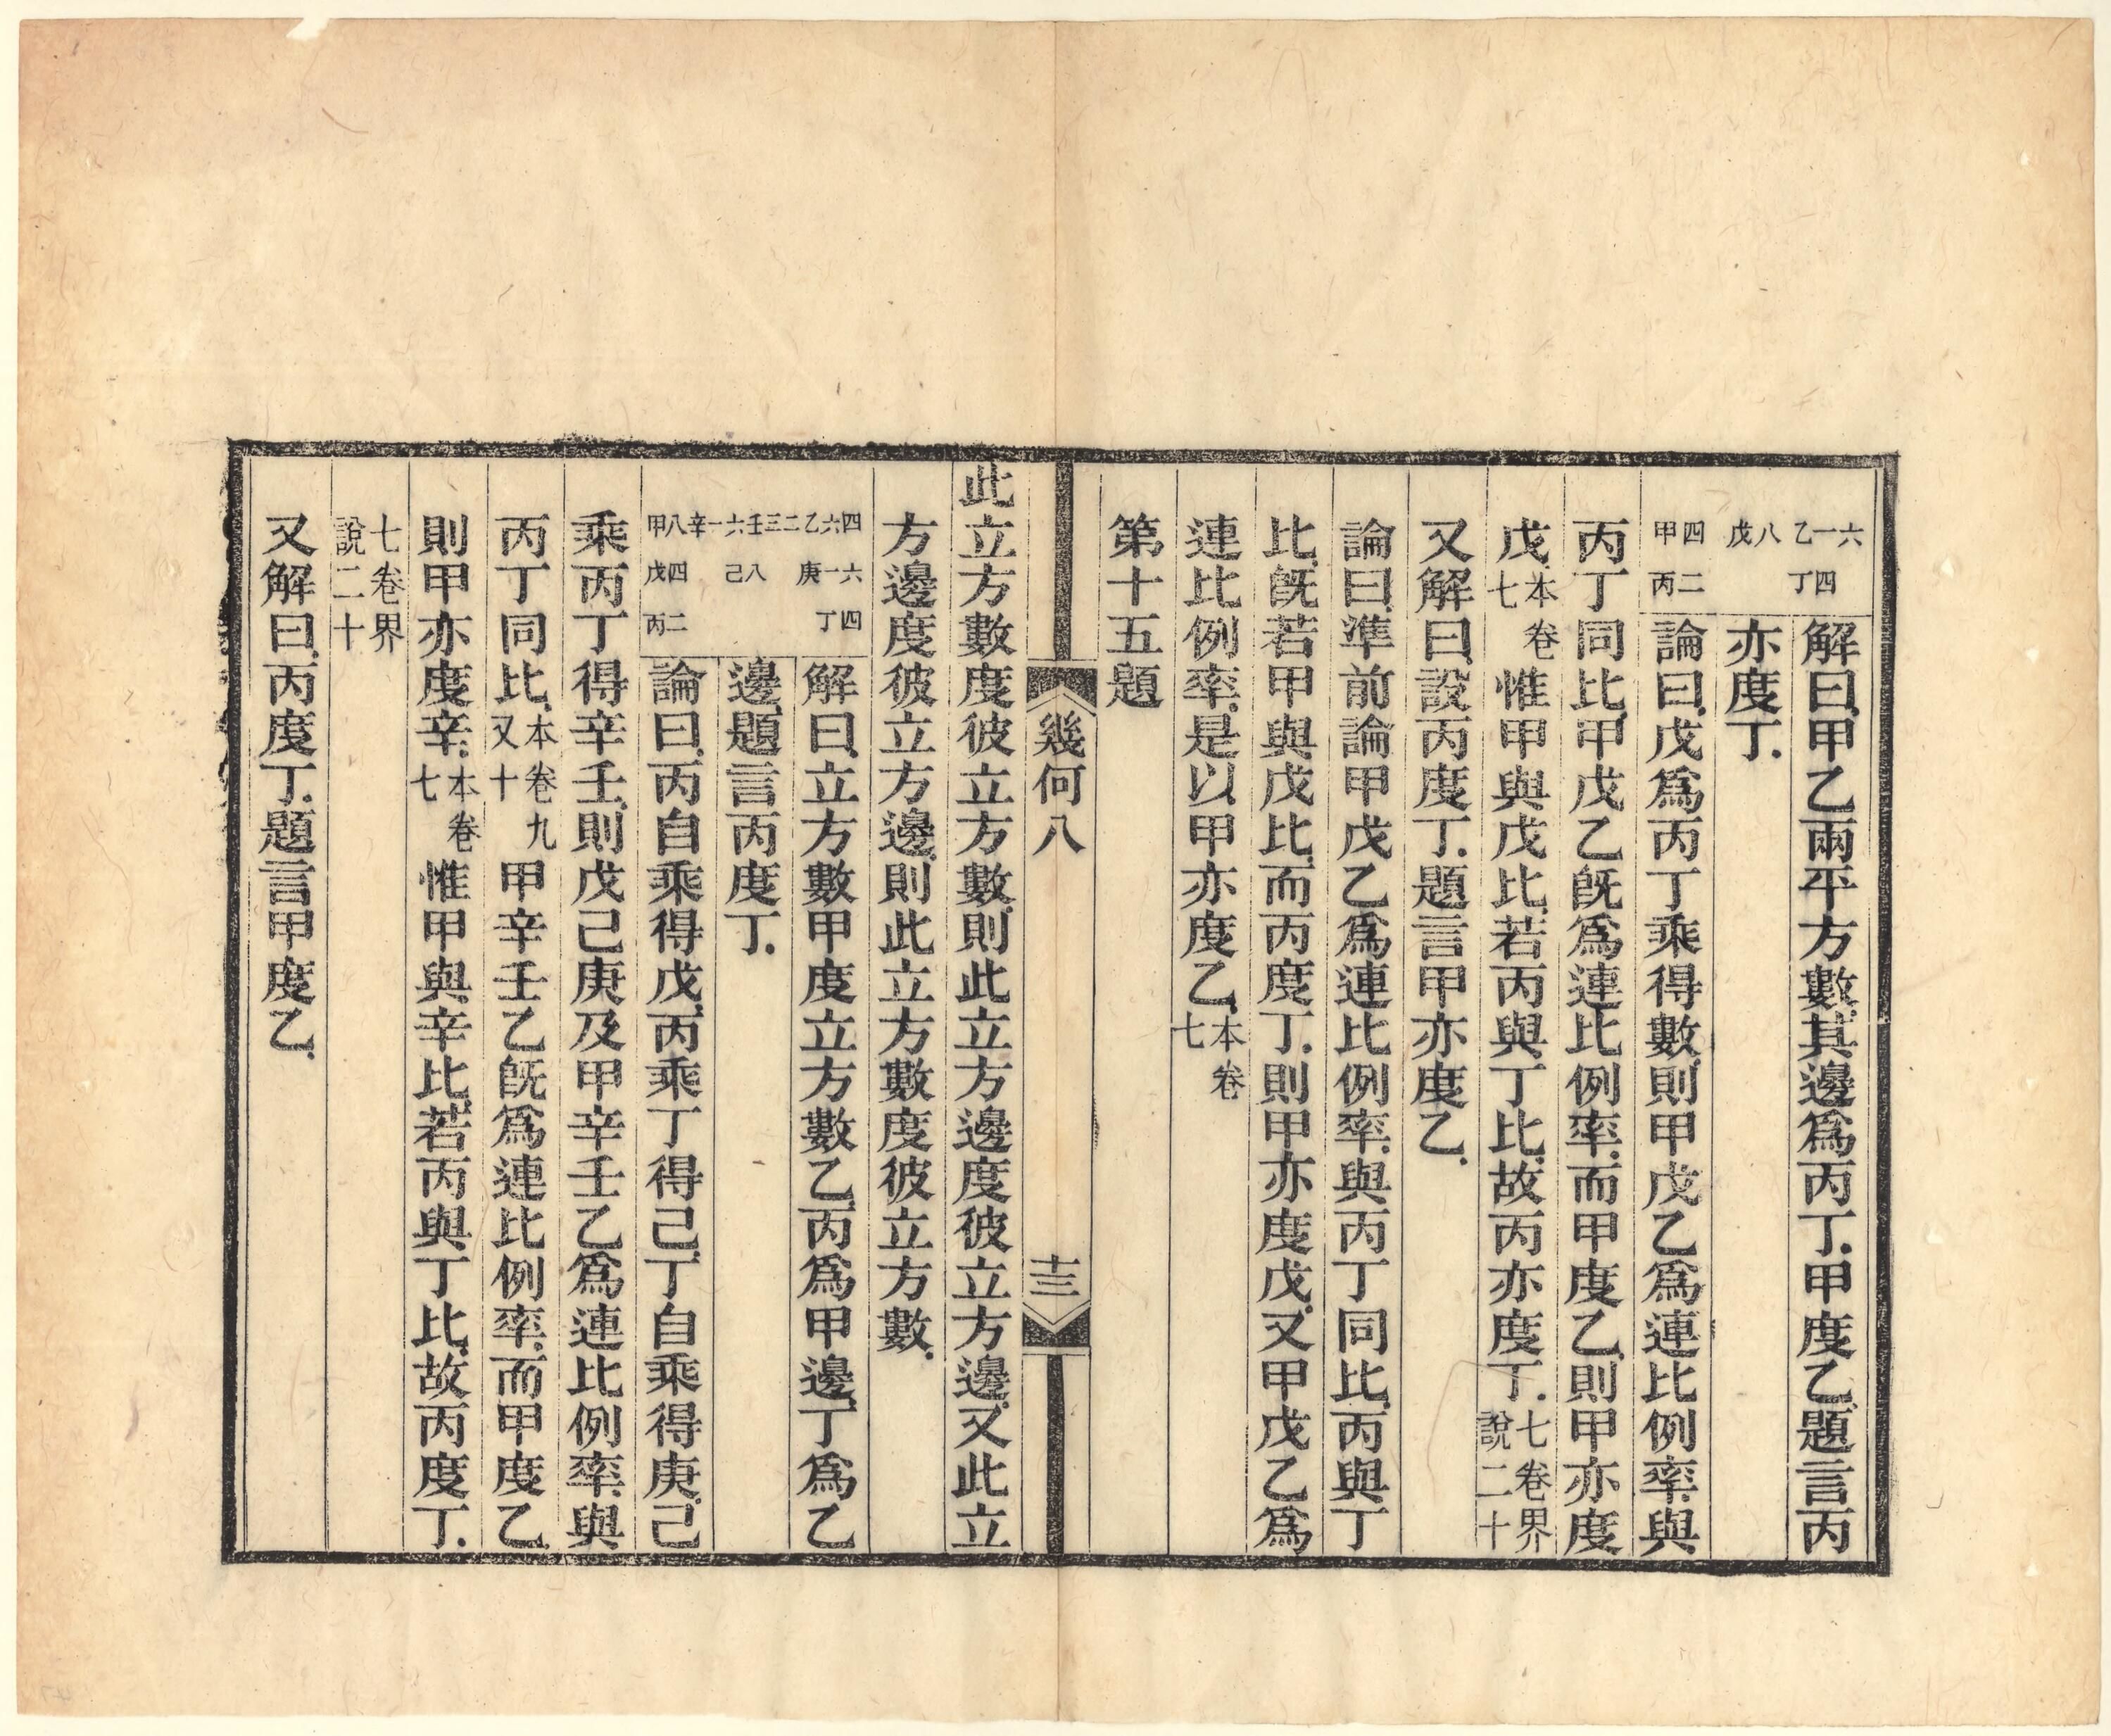 甲四 戊八 乙一六
丙二 丁四
解曰、甲乙兩平方數、其邊爲丙丁、甲度乙、題言丙
亦度丁、
論曰、戊爲丙丁乘得數、則甲戊乙爲連比例率、與
丙丁同比、甲戊乙旣爲連比例率、而甲度乙、則甲亦度
戊、本卷七惟甲與戊比、若丙與丁比、故丙亦度丁、七卷界說二十
又解曰、設丙度丁、題言甲亦度乙、
論曰、準前論甲戊乙爲連比例率、與丙丁同比、丙與丁
比、旣若甲與戊比、而丙度丁、則甲亦度戊、又甲戊乙爲
連比例率、是以甲亦度乙、本卷七
第十五題
幾何八
十三
此立方數度彼立方數、則此立方邊度彼立方邊、又此立
方邊度彼立方邊、則此立方數度彼立方數、
甲八 辛一六 壬三二 乙六四
戊四 己八 庚一六
丙二 丁四
解曰、立方數甲度立方數乙、丙爲甲邊、丁爲乙
邊、題言丙度丁、
論曰、丙自乘得戊、丙乘丁得己、丁自乘得庚、己
乘丙丁得辛壬、則戊己庚及甲辛壬乙爲連比例率、與
丙丁同比、本卷九又十甲辛壬乙旣爲連比例率、而甲度乙、
則甲亦度辛、本卷七惟甲與辛比、若丙與丁比、故丙度丁、
七卷界說二十
又解曰、丙度丁、題言甲度乙、